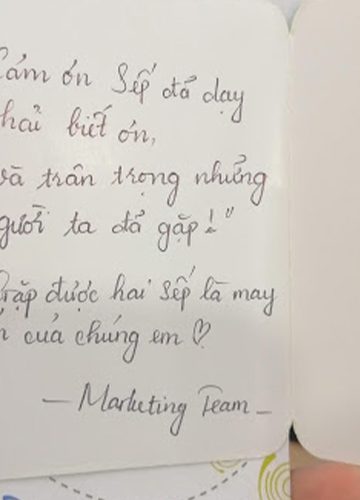 Cảm ơn Sếp đã dạy
phải biết ơn,
và trân trọng những
người ta đã gặp!"
Gặp được hai Sếp là may
của chúng em ♡
— Marketing Team —